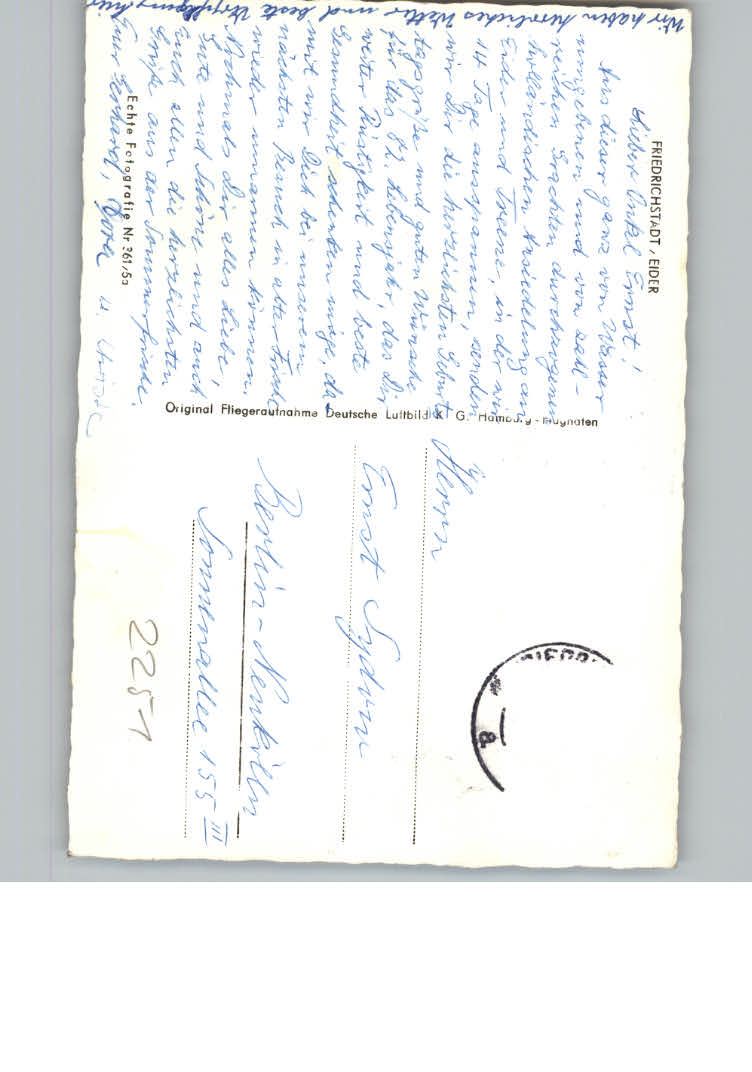 FRIEDRICHSTADT / EIDER
Lieber Onkel Ernst!
Aus dieser ganz von Wasser
umgebenen und von zahl-
reichen Grachten durchzogenen
holländischen Ansiedelung an
Eider und Treene, in der wir
14 Tage ausspannen, senden
wir Dir die herzlichsten Geburts
tagsgrüße und guten Wünsche
für das 81. Lebensjahr, das Dir
weiter Rüstigkeit und beste
Gesundheit schenken möge, da-
mit wir Dich bei unserem
nächsten Besuch in alter Frische
wieder umarmen können.
Nochmals Dir alles Liebe,
Gute und Schöne und auch
Euch allen die herzlichsten
Grüße aus der Sommerfrische.
Euer Gerhard, u.
Wir haben herrliches Wetter und beste Verpflegung hier
Echte Fotografie Nr 361/5a
Original Fliegeraufnahme Deutsche Luftbild K G. Hamburg - Flughafen
Herrn
Ernst Sydow
Berlin-Neukölln
Sonnenallee 155 III
2251
a